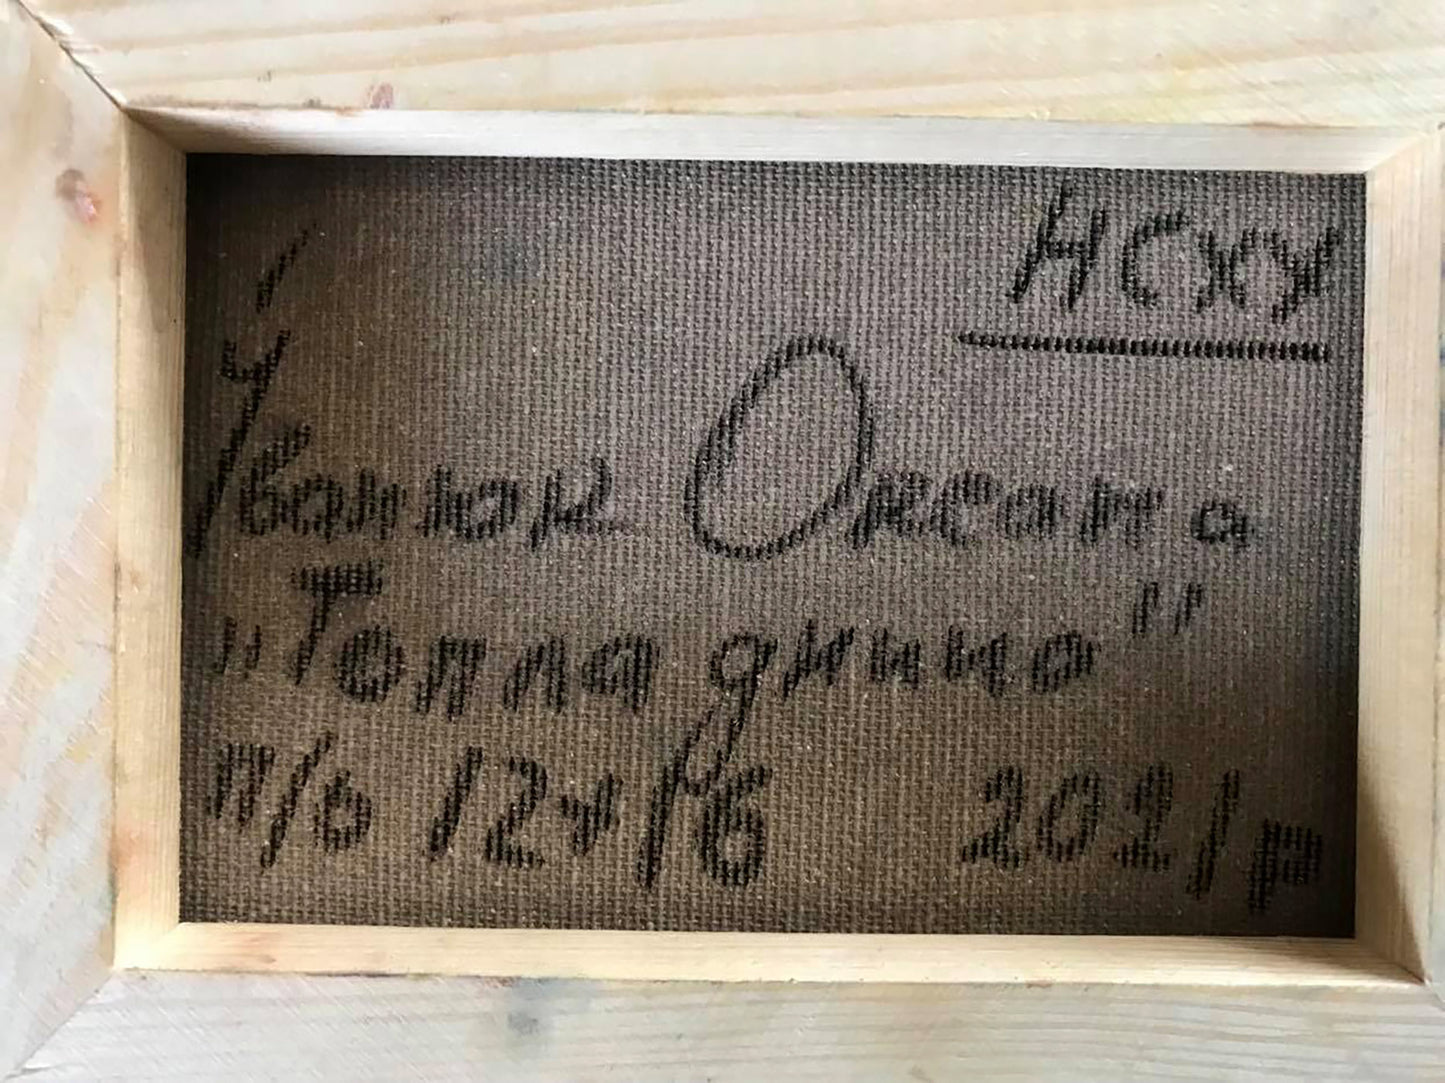 НСХУ
Іванюк Оксана
„Тепла днина"
п/о 12х16 2021р